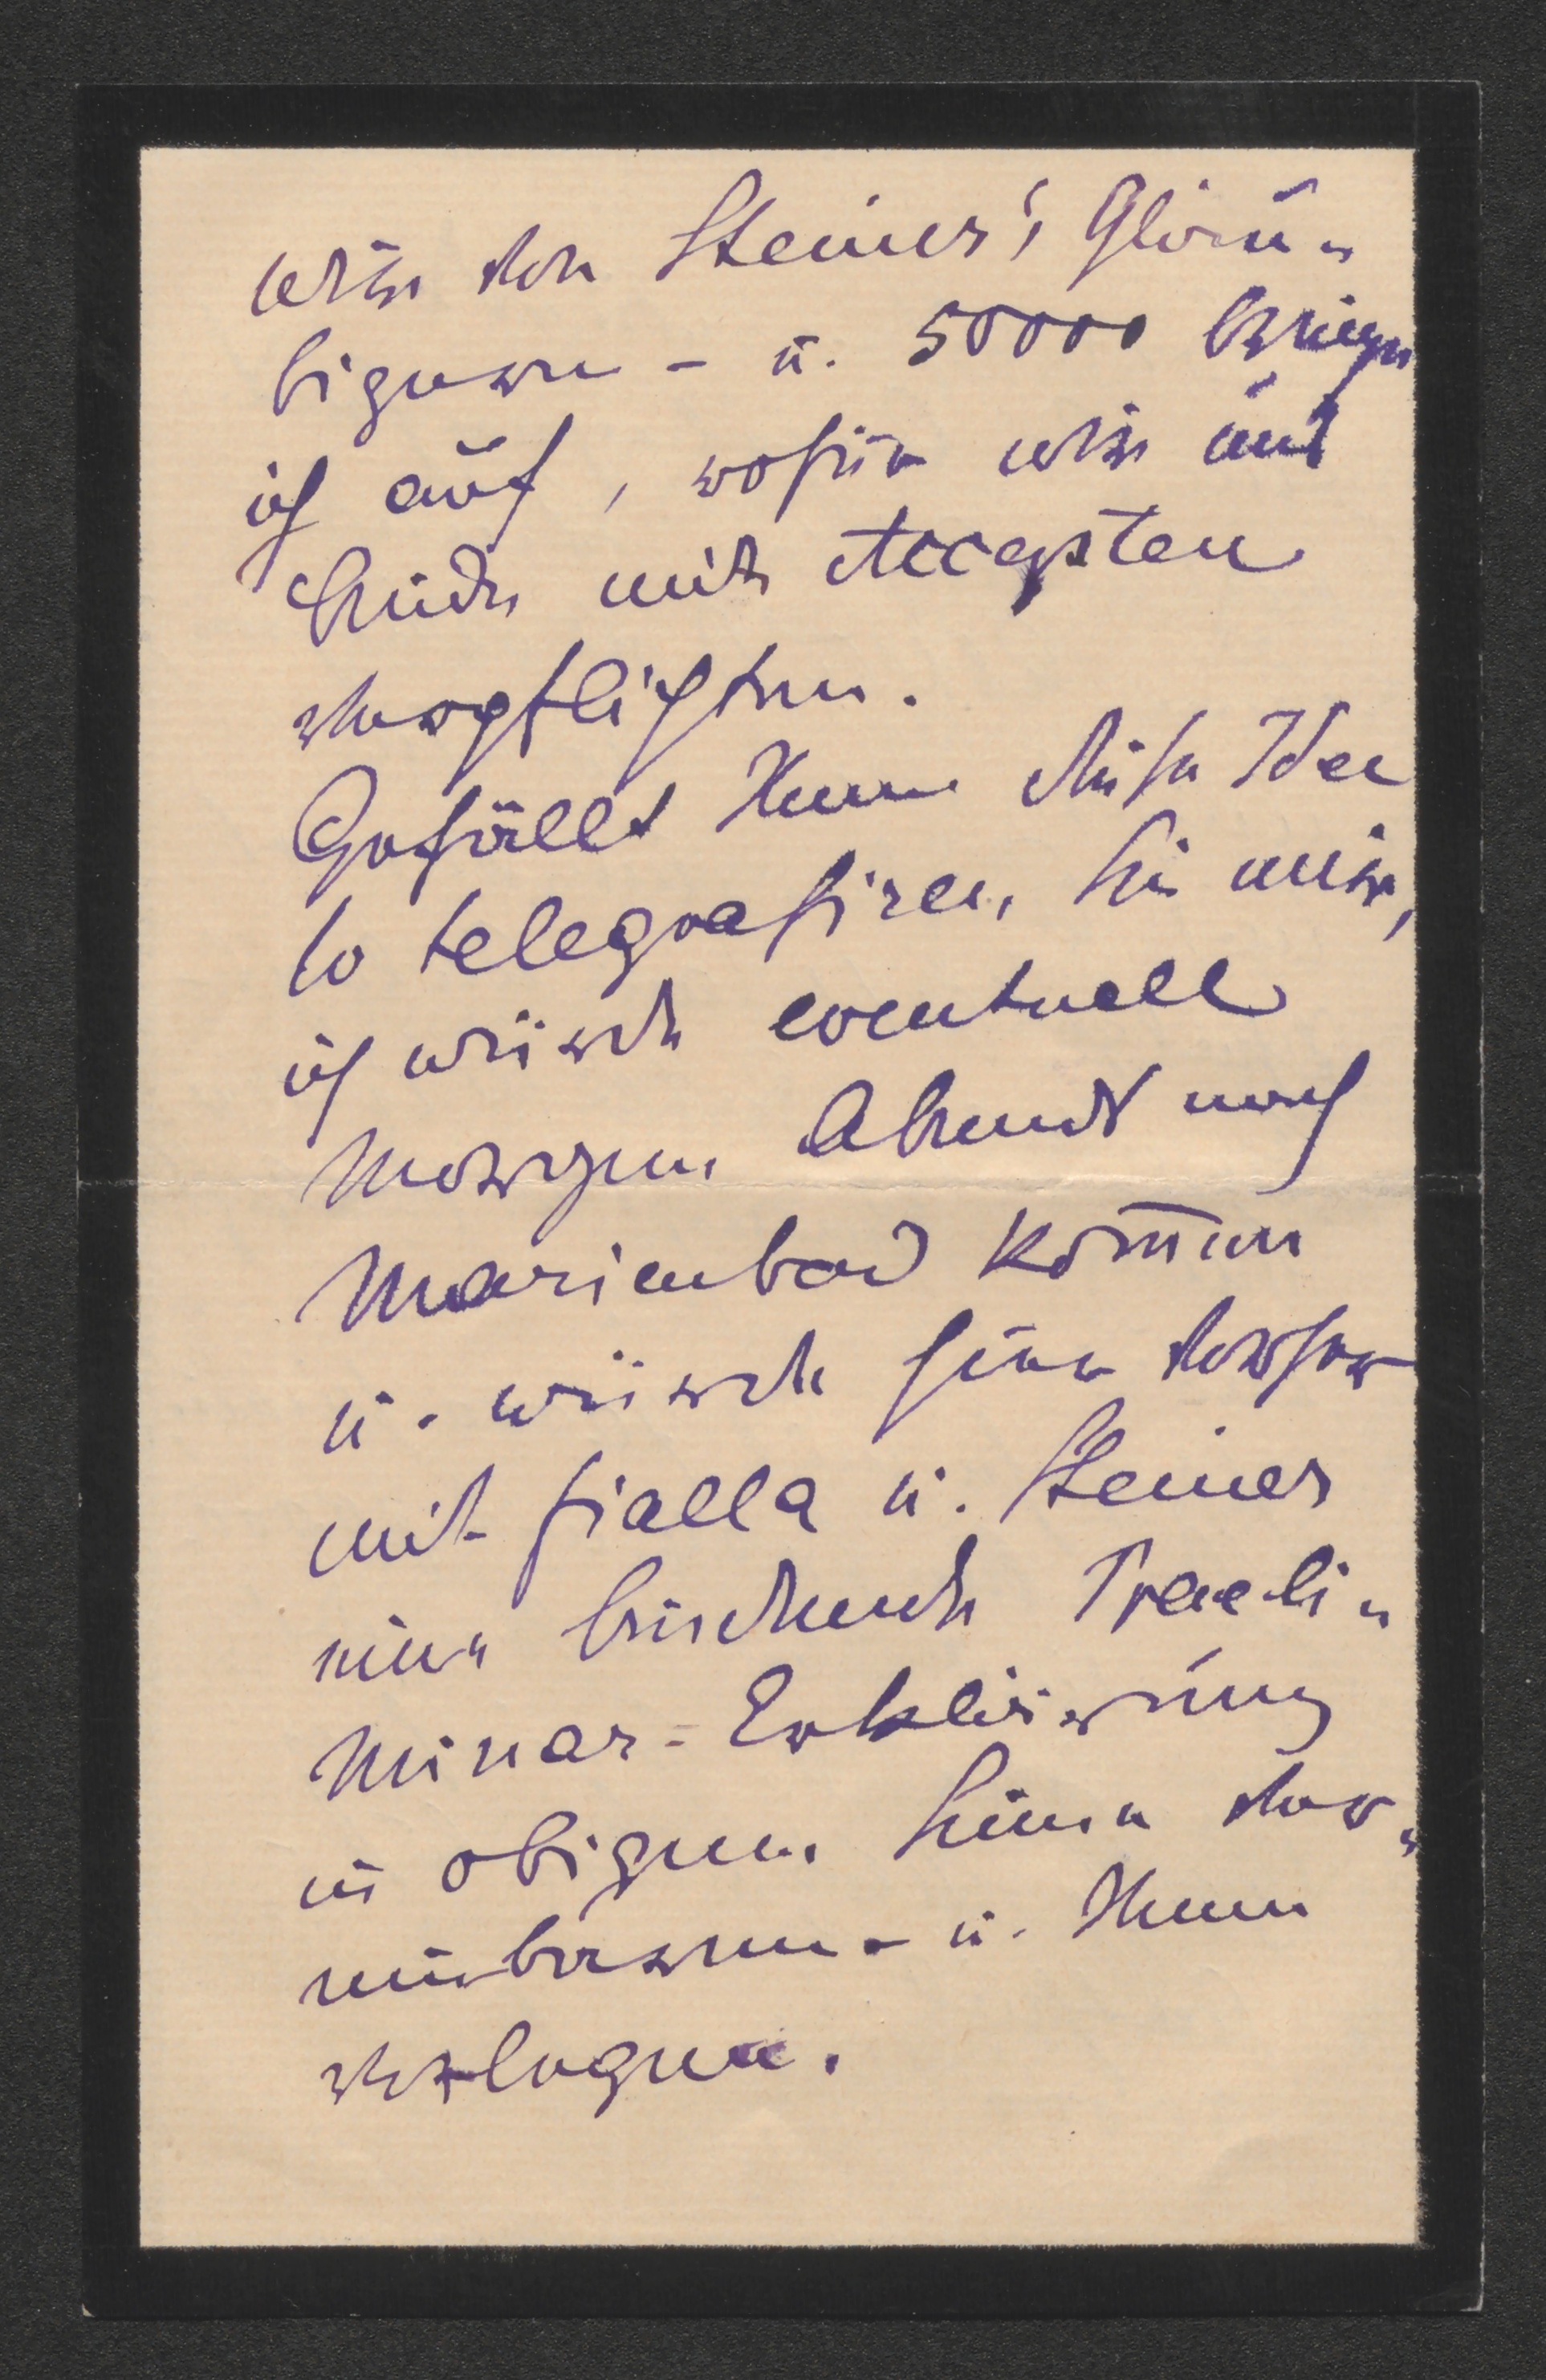 wir von Steiner's Gläu-
bigeren – u. 50000 bringe
ich auf, wofür wir uns
beide mit Accepten
verpflichten.
Gefällt Ihnen diese Idee
so telegrafiren Sie mir,
ich würde eventuell
Morgen Abends nach
Marienbad kom̄en
u. würde hier vorher
mit Fialla u. Steiner
eine bindende Praeli-
minar-Erklärung
in obigem Sinne ver-
einbaren – u. Ihnen
vorlegen.